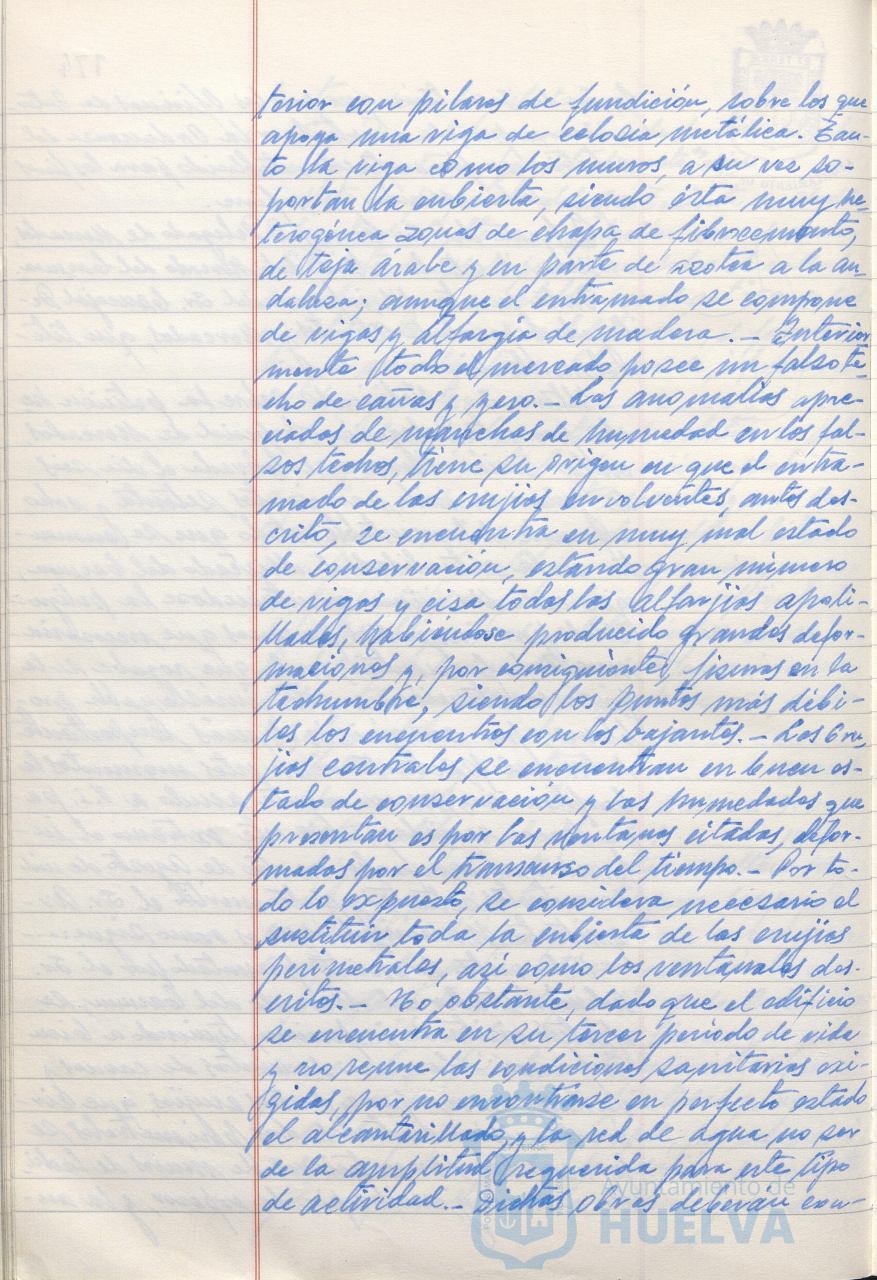 terior con pilares de fundición, sobre los que
apoya una viga de celosía metálica. Tan-
to la viga como los muros, a su vez so-
portan la cubierta, siendo ésta muy he-
terogénea zonas de chapa de fibrocemento,
de teja árabe y en parte de azotea a la an
daluza; aunque el entramado se compone
de vigas y alfargía de madera. - Interior
mente todo el mercado posee un falso te-
cho de cañas y yeso. - Las anomalías apre-
ciadas de manchas de humedad en los fal-
sos techos, tiene su origen en que el entra-
mado de las crujías envolventes, antes des-
crito, se encuentra en muy mal estado
de conservación, estando gran número
de vigas y casi todas las alfarjías apoli-
lladas, habiéndose producido grandes defor-
maciones y, por consiguientes, fisuras en la
techumbre, siendo los puntos más débi-
les los encuentros con los bajantes. - Las Cru
jías centrales se encuentran en buen es-
tado de conservación y las humedades que
presentan es por las ventanas citadas, defor-
madas por el transcurso del tiempo. - Por to-
do lo expuesto, se considera necesario el
sustituir toda la cubierta de las crujías
perimetrales, así como los ventanales des-
critos. - No obstante, dado que el edificio
se encuentra en su tercer período de vida
y no reune las condiciones sanitarias exi-
gidas, por no encontrarse en perfecto estado
el alcantarillado, y la red de agua no ser
de la amplitud requerida para este tipo
de actividad. - Dichas obras deberán con-
Ayuntamiento de
HUELVA